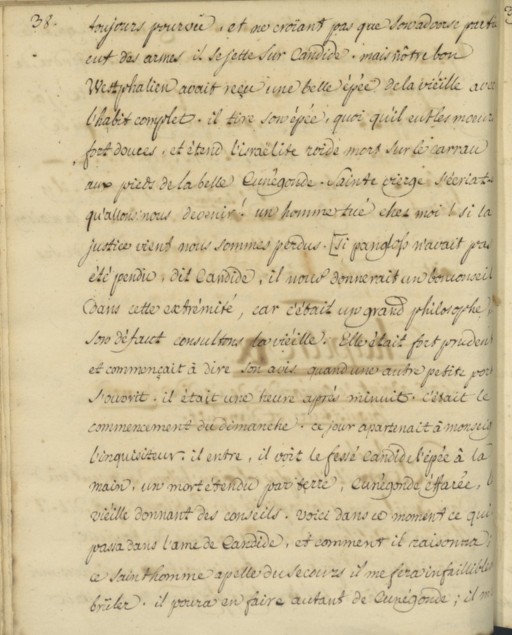 38.
toujours pourvu, et ne croiant pas que son adverse parti
eut des armes il se jette sur Candide. mais nôtre bon
Westphalien avait reçu une belle épée de la vieille avec
l'habit complet. il tire son épée, quoi qu'il eut les mœurs
fort douces, et étend l'israelite roide mort sur le carrau
aux pieds de la belle Cunégonde. Sainte vierge s'écriat-
qu'allons nous devenir! un homme tué chez moi! si la
justice vient nous sommes perdus. [Si pangloss n'avait pas
été pendu, dit Candide, il nous donnerait un bon conseil
dans cette extrémité, car c'était un grand philosophe,
son défaut consultons la vieille. Elle était fort pruden
et commençait à dire son avis quand une autre petite por
s'ouvrit. il était une heure après minuit. c'était le
commencement du dimanche. ce jour apartenait à monseig
l'inquisiteur. il entre, il voit le fessé Candide l'épée à la
main, un mort étendu par terre, Cunégonde éffarée, l
vieille donnant des conseils. voici dans ce moment ce qui
passa dans l'ame de Candide, et comment il raisonna
ce saint homme apelle du secours il me fera infaillible
brûler. il poura en faire autant de Cunégonde; il m